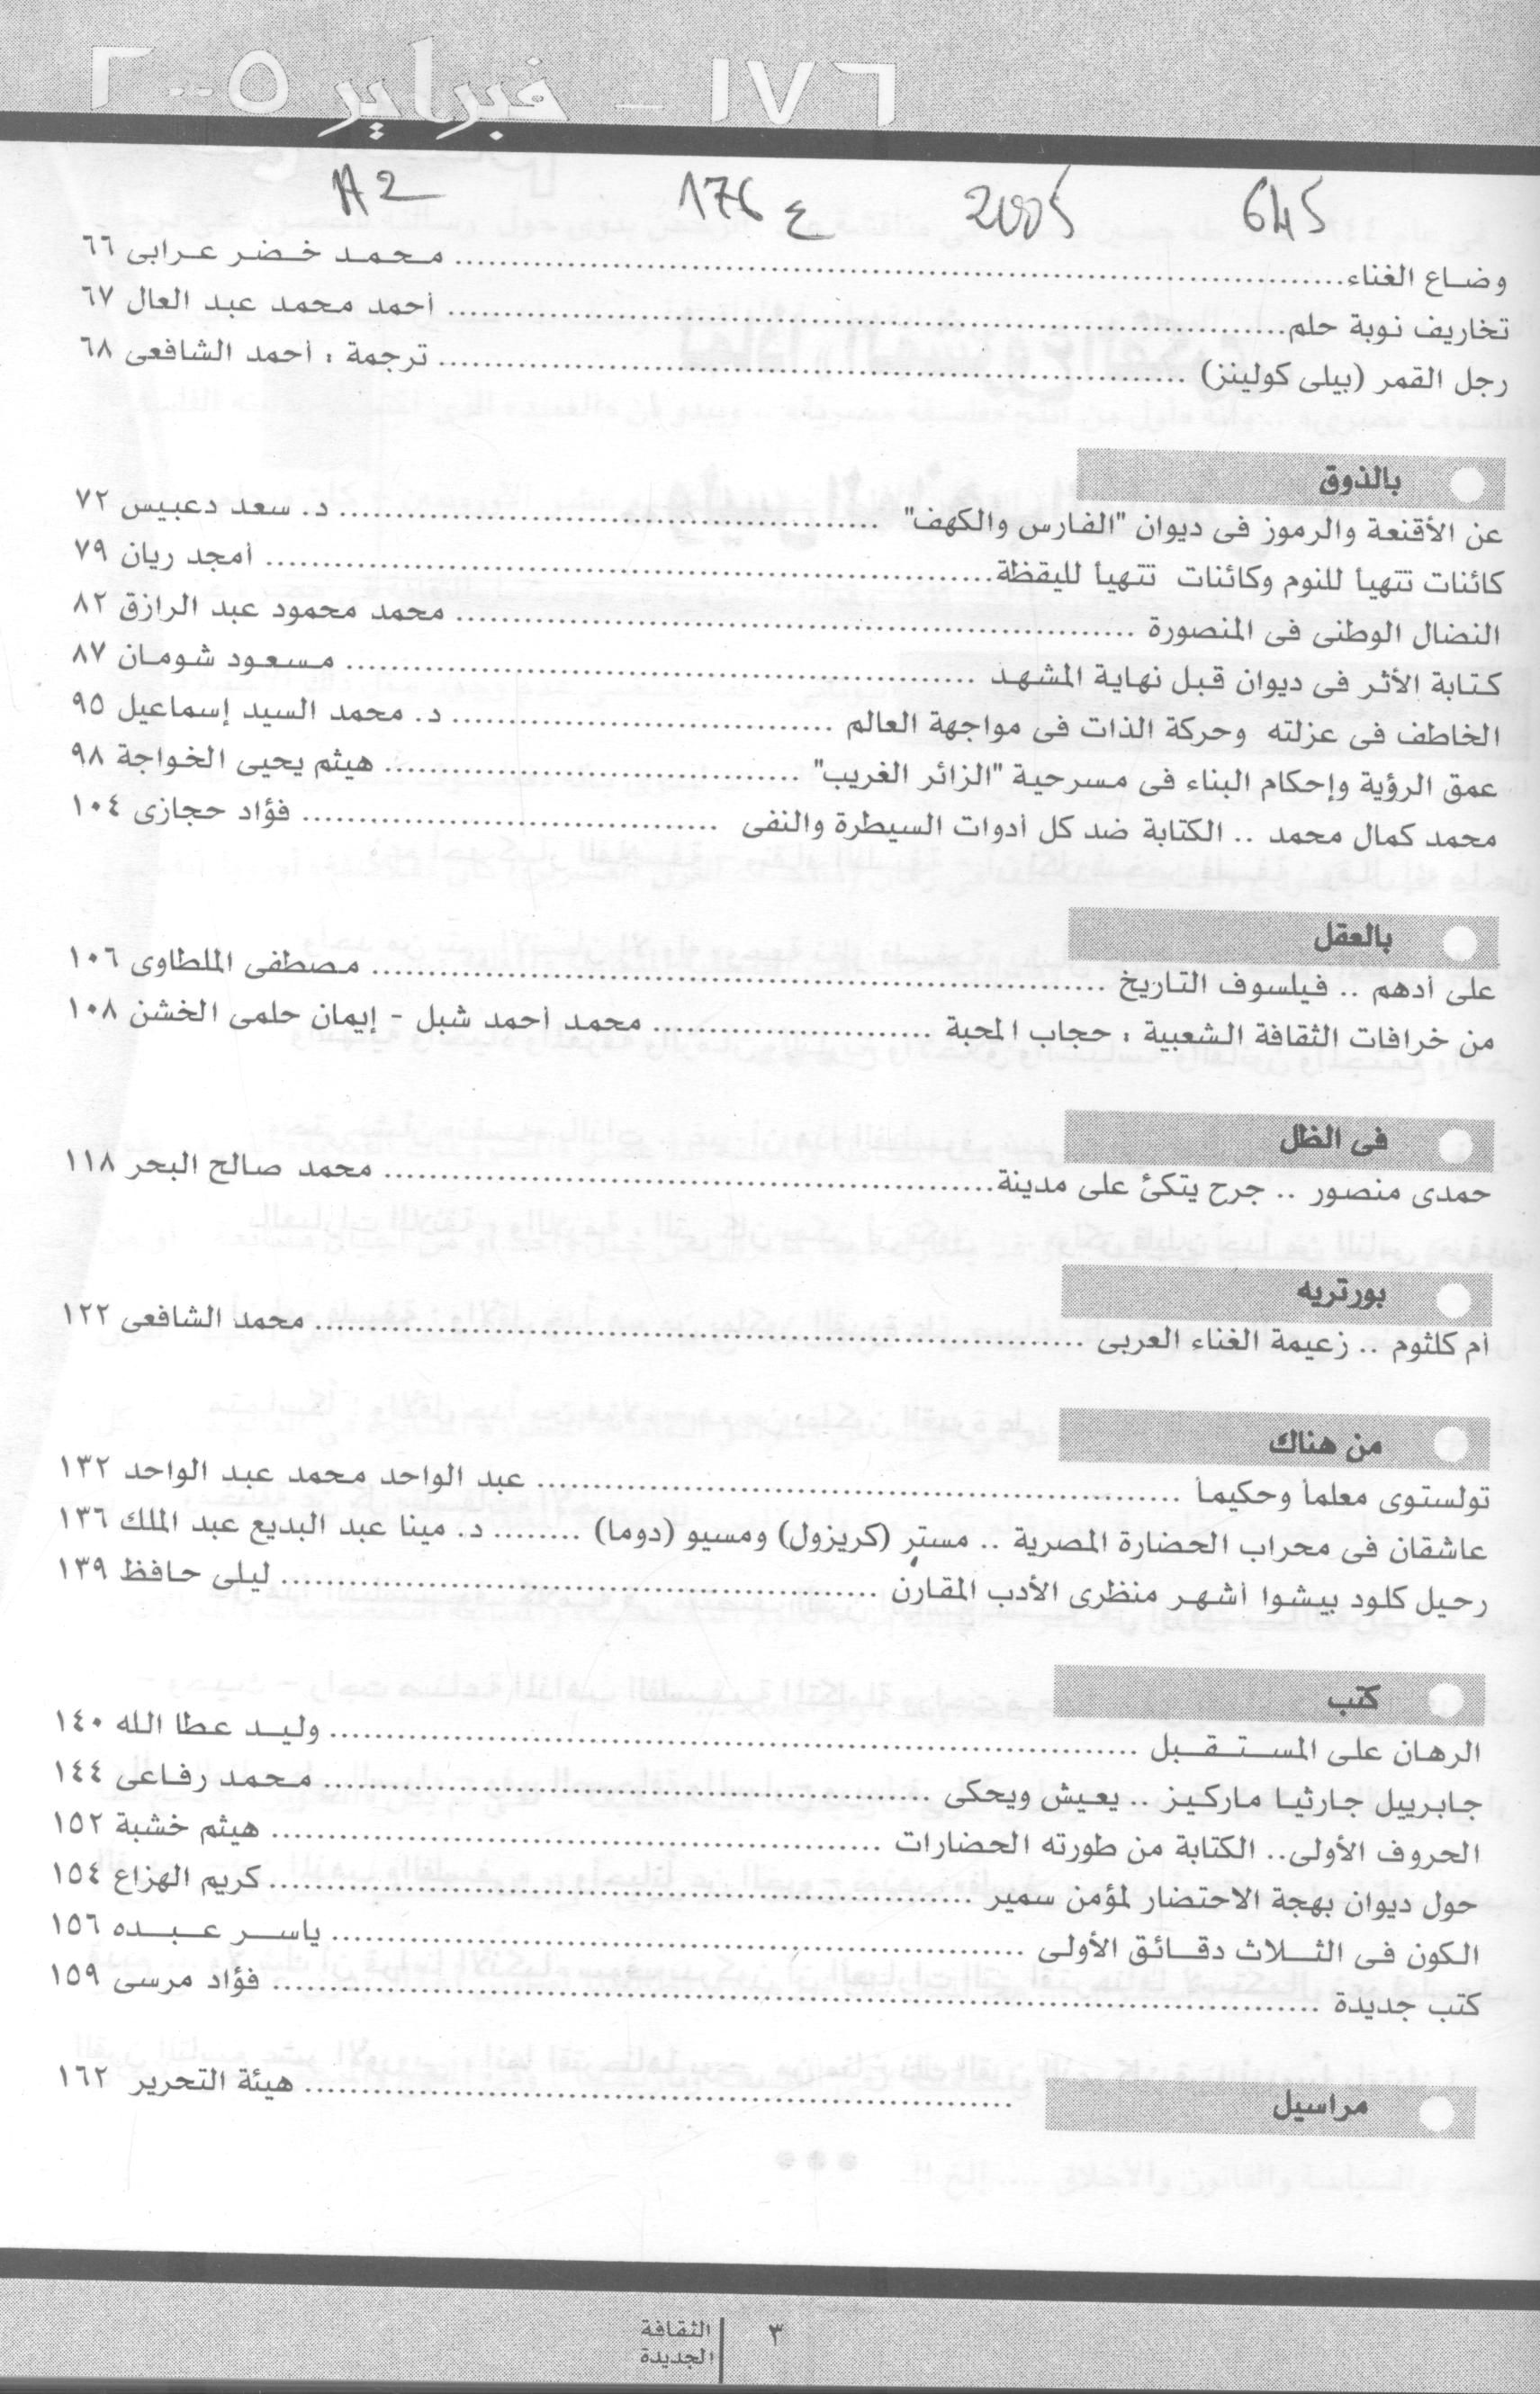 ١٧٦ - فبراير ٢٠٠٥
A2 176 ع 2005 645
وضاع الغناء محمد خضر عرابى ٦٦
تخاريف نوبة حلم أحمد محمد عبد العال ٦٧
رجل القمر (بيلى كولينز) ترجمة : أحمد الشافعى ٦٨
بالذوق
عن الأقنعة والرموز فى ديوان "الفارس والكهف" د. سعد دعبيس ٧٢
كائنات تتهيأ للنوم وكائنات تتهيأ لليقظة أمجد ريان ٧٩
النضال الوطنى فى المنصورة محمد محمود عبد الرازق ٨٢
كتابة الأثر فى ديوان قبل نهاية المشهد مسعود شومان ٨٧
الخاطف فى عزلته وحركة الذات فى مواجهة العالم د. محمد السيد إسماعيل ٩٥
عمق الرؤية وإحكام البناء فى مسرحية "الزائر الغريب" هيثم يحيى الخواجة ٩٨
محمد كمال محمد .. الكتابة ضد كل أدوات السيطرة والنفى فؤاد حجازى ١٠٤
بالعقل
على أدهم .. فيلسوف التاريخ مصطفى الملطاوى ١٠٦
من خرافات الثقافة الشعبية : حجاب المحبة محمد أحمد شبل - إيمان حلمى الخشن ١٠٨
فى الظل
حمدى منصور .. جرح يتكئ على مدينة محمد صالح البحر ١١٨
بورتريه
أم كلثوم .. زعيمة الغناء العربى محمد الشافعى ١٢٢
من هناك
تولستوى معلماً وحكيماً عبد الواحد محمد عبد الواحد ١٣٢
عاشقان فى محراب الحضارة المصرية .. مستر (كريزول) ومسيو (دوما) د. مينا عبد البديع عبد الملك ١٣٦
رحيل كلود بيشوا أشهر منظرى الأدب المقارن ليلى حافظ ١٣٩
كتب
الرهان على المستقبل وليد عطا الله ١٤٠
جابرييل جارثيا ماركيز .. يعيش ويحكى محمد رفاعى ١٤٤
الحروف الأولى.. الكتابة من طورته الحضارات هيثم خشبة ١٥٢
حول ديوان بهجة الاحتضار لمؤمن سمير كريم الهزاع ١٥٤
الكون فى الثلاث دقائق الأولى ياسر عبده ١٥٦
كتب جديدة فؤاد مرسى ١٥٩
مراسيل هيئة التحرير ١٦٢
٣
الثقافة
الجديدة